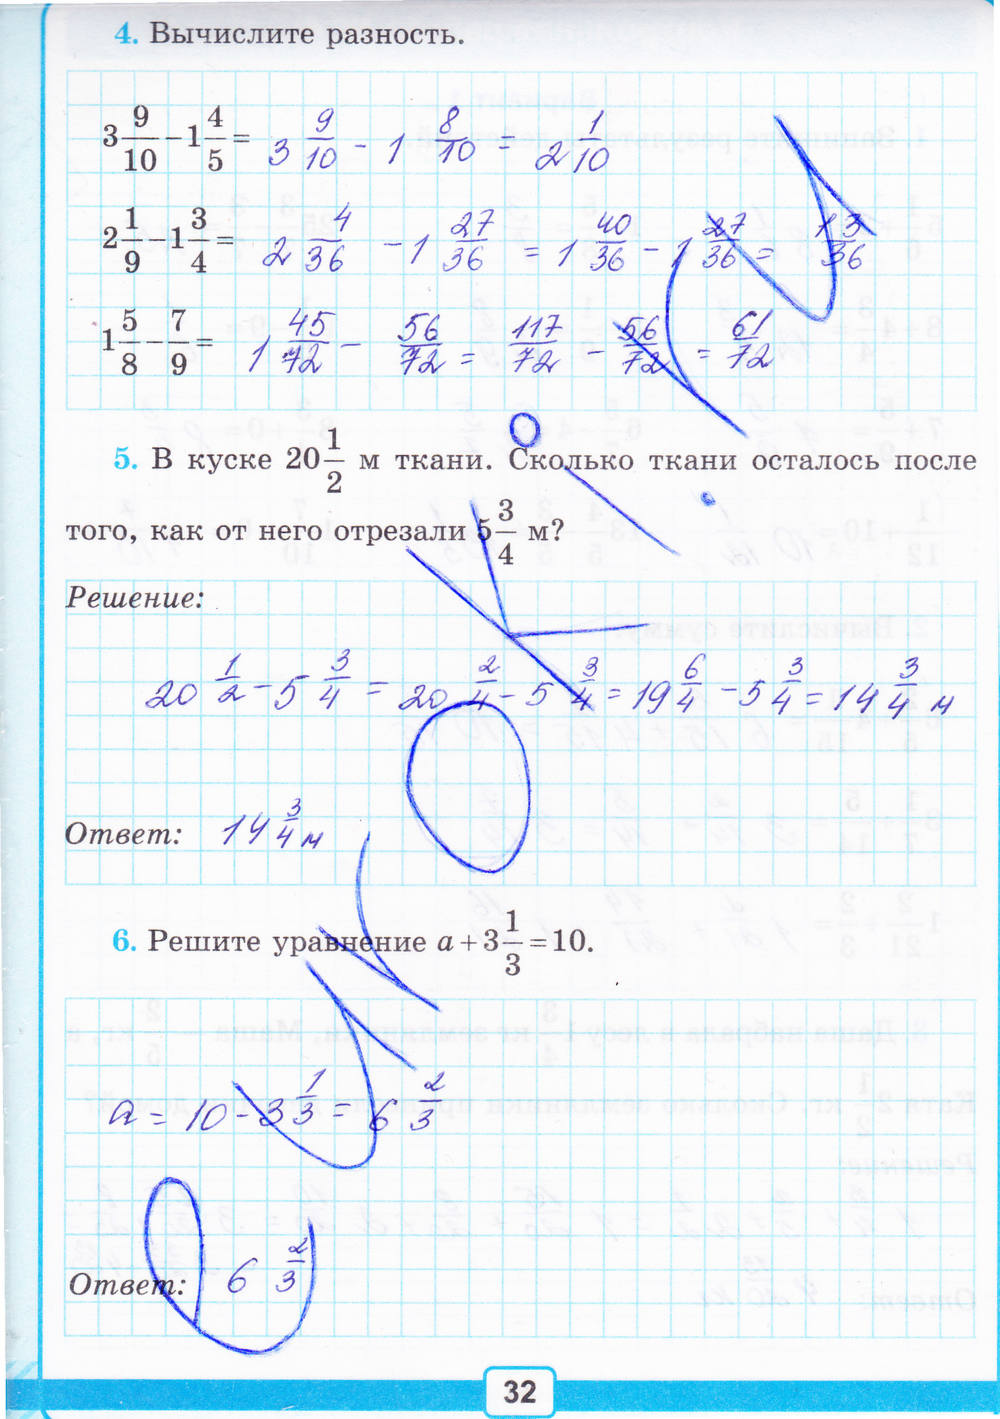 4. Вычислите разность.
3 9/10 − 1 4/5 = 3 9/10 − 1 8/10 = 2 1/10
2 1/9 − 1 3/4 = 2 4/36 − 1 27/36 = 1 40/36 − 1 27/36 = 13/36
1 5/8 − 7/9 = 1 45/72 − 56/72 = 117/72 − 56/72 = 61/72
5. В куске 20 1/2 м ткани. Сколько ткани осталось после
того, как от него отрезали 5 3/4 м?
Решение:
20 1/2 − 5 3/4 = 20 2/4 − 5 3/4 = 19 6/4 − 5 3/4 = 14 3/4 м
Ответ: 14 3/4 м
6. Решите уравнение a + 3 1/3 = 10.
a = 10 − 3 1/3 = 6 2/3
Ответ: 6 2/3
32